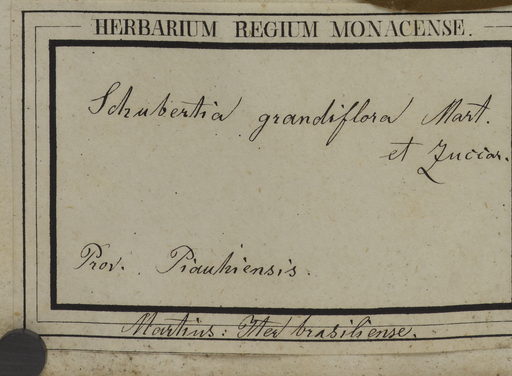 HERBARIUM REGIUM MONACENSE.
Schubertia grandiflora Mart.
et Zuccar.
Prov. Piauhiensis.
Martius: Iter brasiliense.